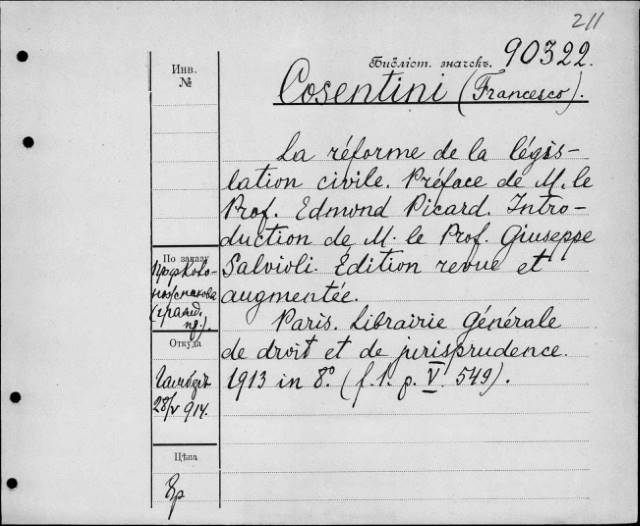 211
Библіот. значекъ. 90322.
Инв.
№
Cosentini (Francesco).
La réforme de la légis-
lation civile. Préface de M. le
Prof. Edmond Picard. Intro-
duction de M. le Prof. Giuseppe
Salvioli. Édition revue et
augmentée.
Paris. Librairie Générale
de droit et de jurisprudence.
1913 in 8° (f. l. p. V. 549).
По заказу
(гражд.
Откуда
28/V 914.
Цѣна
8р